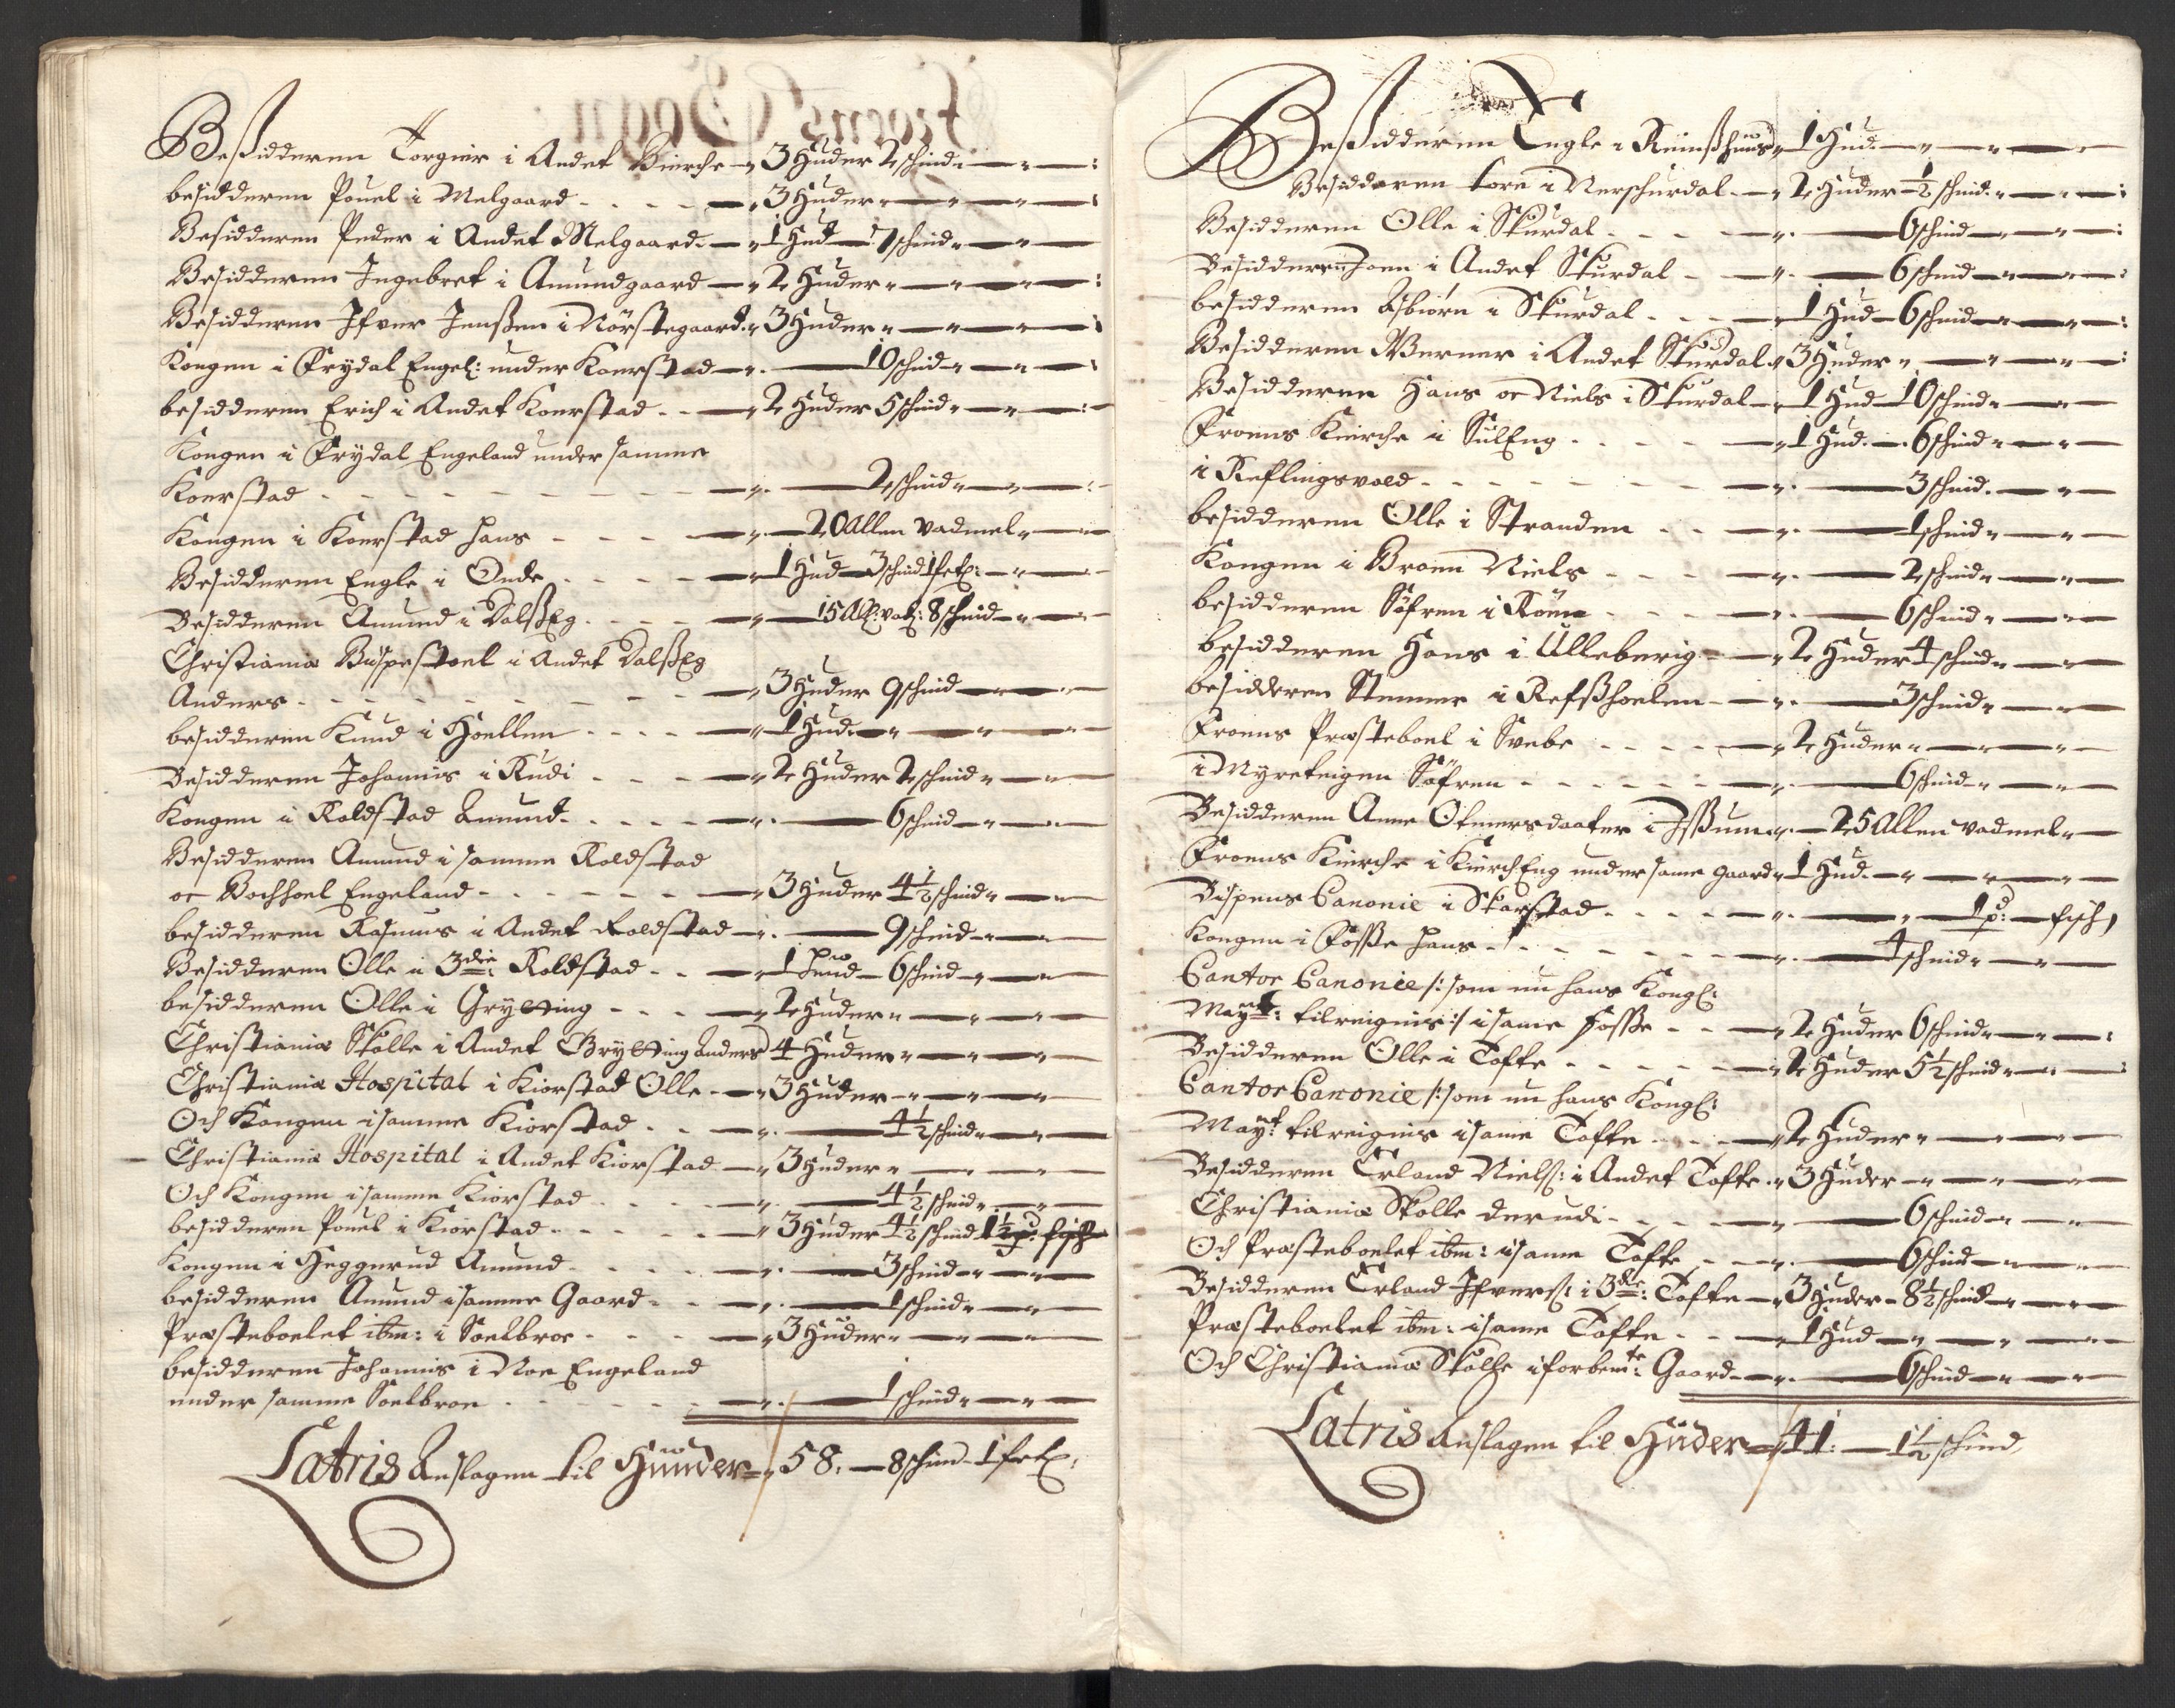 Besidderen Torgier i Andet Kierche 3 Huder 2 schind
besidderen Pouel i Melgaard 3 Huder
Besidderen Peder i Andet Melgaard 1 Hud 1 schind
Besidderen Ingebret i Amundgaard 2 Huder
Besidderen Ifver Jenßen i Nörstegaard 3 Huder
Kongen i Frydal Engel: under Koerstad 10 schind
besidderen Erich i Andet Koerstad 2 Huder 5 schind
Kongen i Frydal Engeland under samme
Koerstad 2 schind
Kongen i Koerstad Hans 20 Allen vadmel
Besidderen Engle i Onde 1 Hud 3 schind 1 sk
Besidderen Amund i Dalßeg 15 All: vad: 8 schind
Christiania Bispestoel i Andet Dalßeg
Anders 3 Huder 9 schind
besidderen Knud i Hoellen 1 Hud
Besidderen Johannis i Rudi 2 Huder 2 schind
Kongen i Roldstad Amund 6 schind
Besidderen Amund i samme Roldstad
oc Bochhoel Engeland 3 Huder 4½ schind
besidderen Rasmus i Andet Roldstad 9 schind
Besidderen Olle i 3die: Roldstad 1 Huud 6 schind
besidderen Olle i Grytting 2 Huder
Christiania Skolle i Andet Grytting Anders 4 Huder
Christiania Hospital i Kiorstad Olle 3 Huder
Och Kongen i samme Kiorstad 4½ schind
Christiania Hospital i Andet Kiorstad 3 Huder
Och Kongen i samme Kiorstad 4½ schind
besidderen Pouel i Kiorstad 3 Huder 4½ schind 1½ p: fisch
Kongen i Heggerud Amund 3 schind
besidderen Amund i samme Gaard 1 schind
Præsteboelet ibm: i Soelbroe 3 Huder
besidderen Johannis i Moe Engeland
under samme Soelbroe 1 schind
Latris Anslagen til Huuder 58: 8 schind 1
Besidderen Engle i Reinßhuus 1 Hud
Besidderen tore i Nerschurdal 2 Huder ½ schind
Besidderen Olle i Skurdal 6 schind
Besidderen Joen i Andet Skurdal 6 schind
besidderen Asbiörn i Skurdal 1 Hud 6 schind
Besidderen Werner i Andet Skurdal 3 Huder
Besidderen Hans oc Niels i Skurdal 1 Hud 10 schind
Froens Kierche i Sul Eng 1 Hud 6 schind
i Reflingsvold 3 schind
besidderen Olle i Stranden 1 schind
Kongen i Broen Niels 2 schind
besidderen Söfren i Röne 6 schind
besidderen Hans i Ulleberig 2 Huder 4 schind
besidderen Stenner i Refßhoelen 3 schind
Froens Præsteboel i Svebe 2 Huder
i Myreteigen Söfren 6 schind
Besidderen Anne Otmersdaater i Ißum 25 Allen vadmel
Froens Kierche i KierchEng under same gaard 1 Hud
Bispens Canonie i Skarstad 1 pd: fisch
Kongen i Foße Hans 4 schind
Cantor Canonie /: som nu hans Kongl:
Mayt: tilreignis :/ i same Foße 2 Huder 6 schind
Besidderen Olle i Tofte 2 Huder 5½ schind
Cantor Canonie /: som nu hans Kongl:
Mayt: tilreignis i same Tofte 2 Huder
Besidderen Erland Nielß: i Andet Tofte 3 Huder
Christiania Skolle derudi 6 schind
Och Præsteboelet ibm: i same Tofte 6 schind
Besidderen Erland Ifverß: i 3de: Tofte 3 Huder 8½ schind
Præsteboelet ibm: i same Tofte 1 Hud
Och Christiania Skolle i forbemte: Gaard 6 schind
Latris Anslagen til Huder 41: 1½ schind